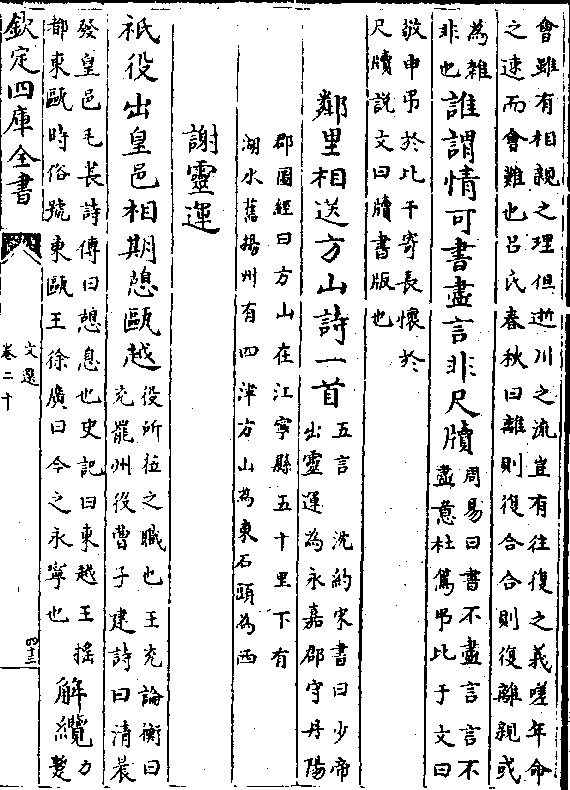 會雖有相親之理但逝川之流豈有往復之義嗟年命
之速而會難也呂氏春秋曰離則復合合則復離親或
為雜
非也誰謂情可書盡言非尺牘周易曰書不盡言言不
盡意杜篤弔比干文曰
敬申弔於比干寄長懷於
尺牘說文曰牘書版也
鄰里相送方山詩一首五言沈約宋書曰少帝
出靈運為永嘉郡守丹陽
郡圖經曰方山在江寧縣五十里下有
湖水舊揚州有四津方山為東石頭為西
謝靈運
祇役出皇邑相期憩甌越役所莅之職也王充論衡曰
充罷州役曹子建詩曰清晨
發皇邑毛萇詩傳曰憩息也史記曰東越王搖
都東甌時俗號東甌王徐廣曰今之永寧也
解纜及
欽定四庫全書
文選
卷二十
四三